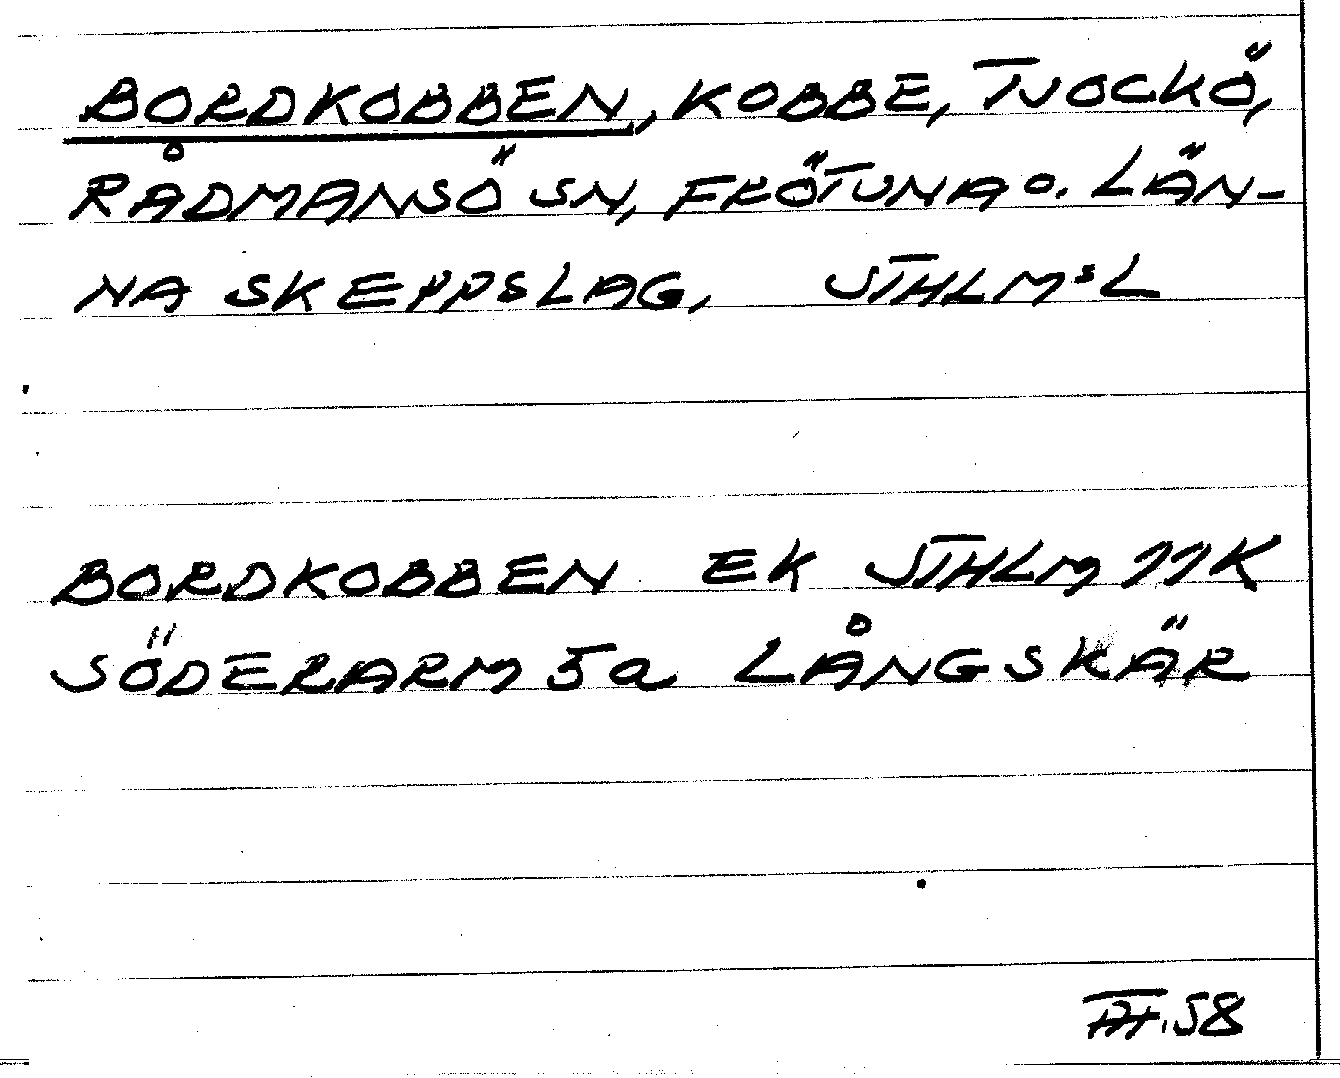 BORDKOBBEN, KOBBE, TJOCKÖ,
RÅDMANSÖ SN, FRÖTUNA O. LÄN-
NA SKEPPSLAG, STHLMSL
BORDKOBBEN EK STHLM 11K
SÖDERARM 5a LÅNGSKÄR
58